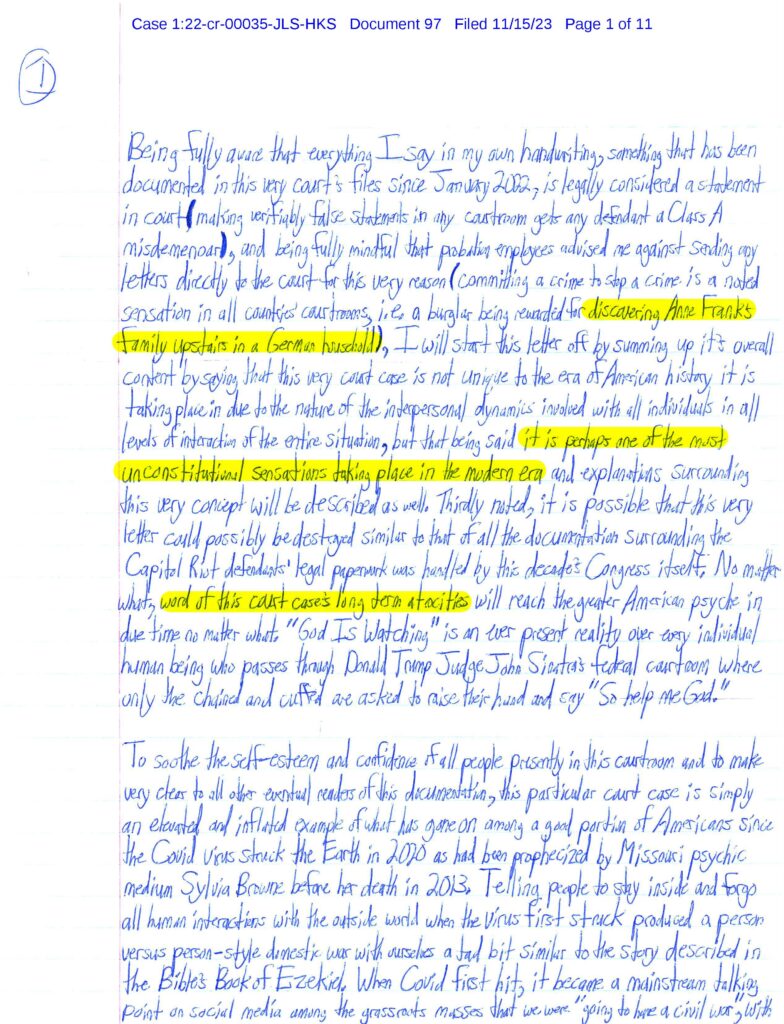 Case 1:22-cr-00035-JLS-HKS Document 97 Filed 11/15/23 Page 1 of 11
1
Being fully aware that everything I say in my own handwriting, something that has been
documented in this very court's files since January 2022, is legally considered a statement
in court (making verifiably false statements in any courtroom gets any defendant a Class A
misdemenoar), and being fully mindful that probation employees advised me against sending any
letters directly to the court for this very reason (committing a crime to stop a crime is a noted
sensation in all counties' courtrooms, i.e. a burglar being rewarded for discovering Anne Frank's
family upstairs in a German household), I will start this letter off by summing up it's overall
content by saying that this very court case is not unique to the era of American history it is
taking place in due to the nature of the interpersonal dynamics involved with all individuals in all
levels of interaction of the entire situation, but that being said it is perhaps one of the most
unconstitutional sensations taking place in the modern era and explanations surrounding
this very concept will be described as well. Thirdly noted, it is possible that this very
letter could possibly be destroyed similar to that of all the documentation surrounding the
Capitol Riot defendants' legal paperwork was handled by this decade's Congress itself. No matter
what, word of this court case's long term atrocities will reach the greater American psyche in
due time no matter what. "God Is Watching" is an ever present reality over every individual
human being who passes through Donald Trump Judge John Sinatra's federal courtroom where
only the chained and cuffed are asked to raise their hand and say "So help me God."
To soothe the self-esteem and confidence of all people presently in this courtroom and to make
very clear to all other eventual readers of this documentation, this particular court case is simply
an elevated and inflated example of what has gone on among a good portion of Americans since
the Covid virus struck the Earth in 2020 as had been prophecized by Missouri psychic
medium Sylvia Browne before her death in 2013. Telling people to stay inside and forgo
all human interactions with the outside world when the virus first struck produced a person
versus person-style domestic war with ourselves a tad bit similar to the story described in
the Bible's Book of Ezekiel. When Covid first hit, it became a mainstream talking
point on social media among the grassroots masses that we were "going to have a civil war," with